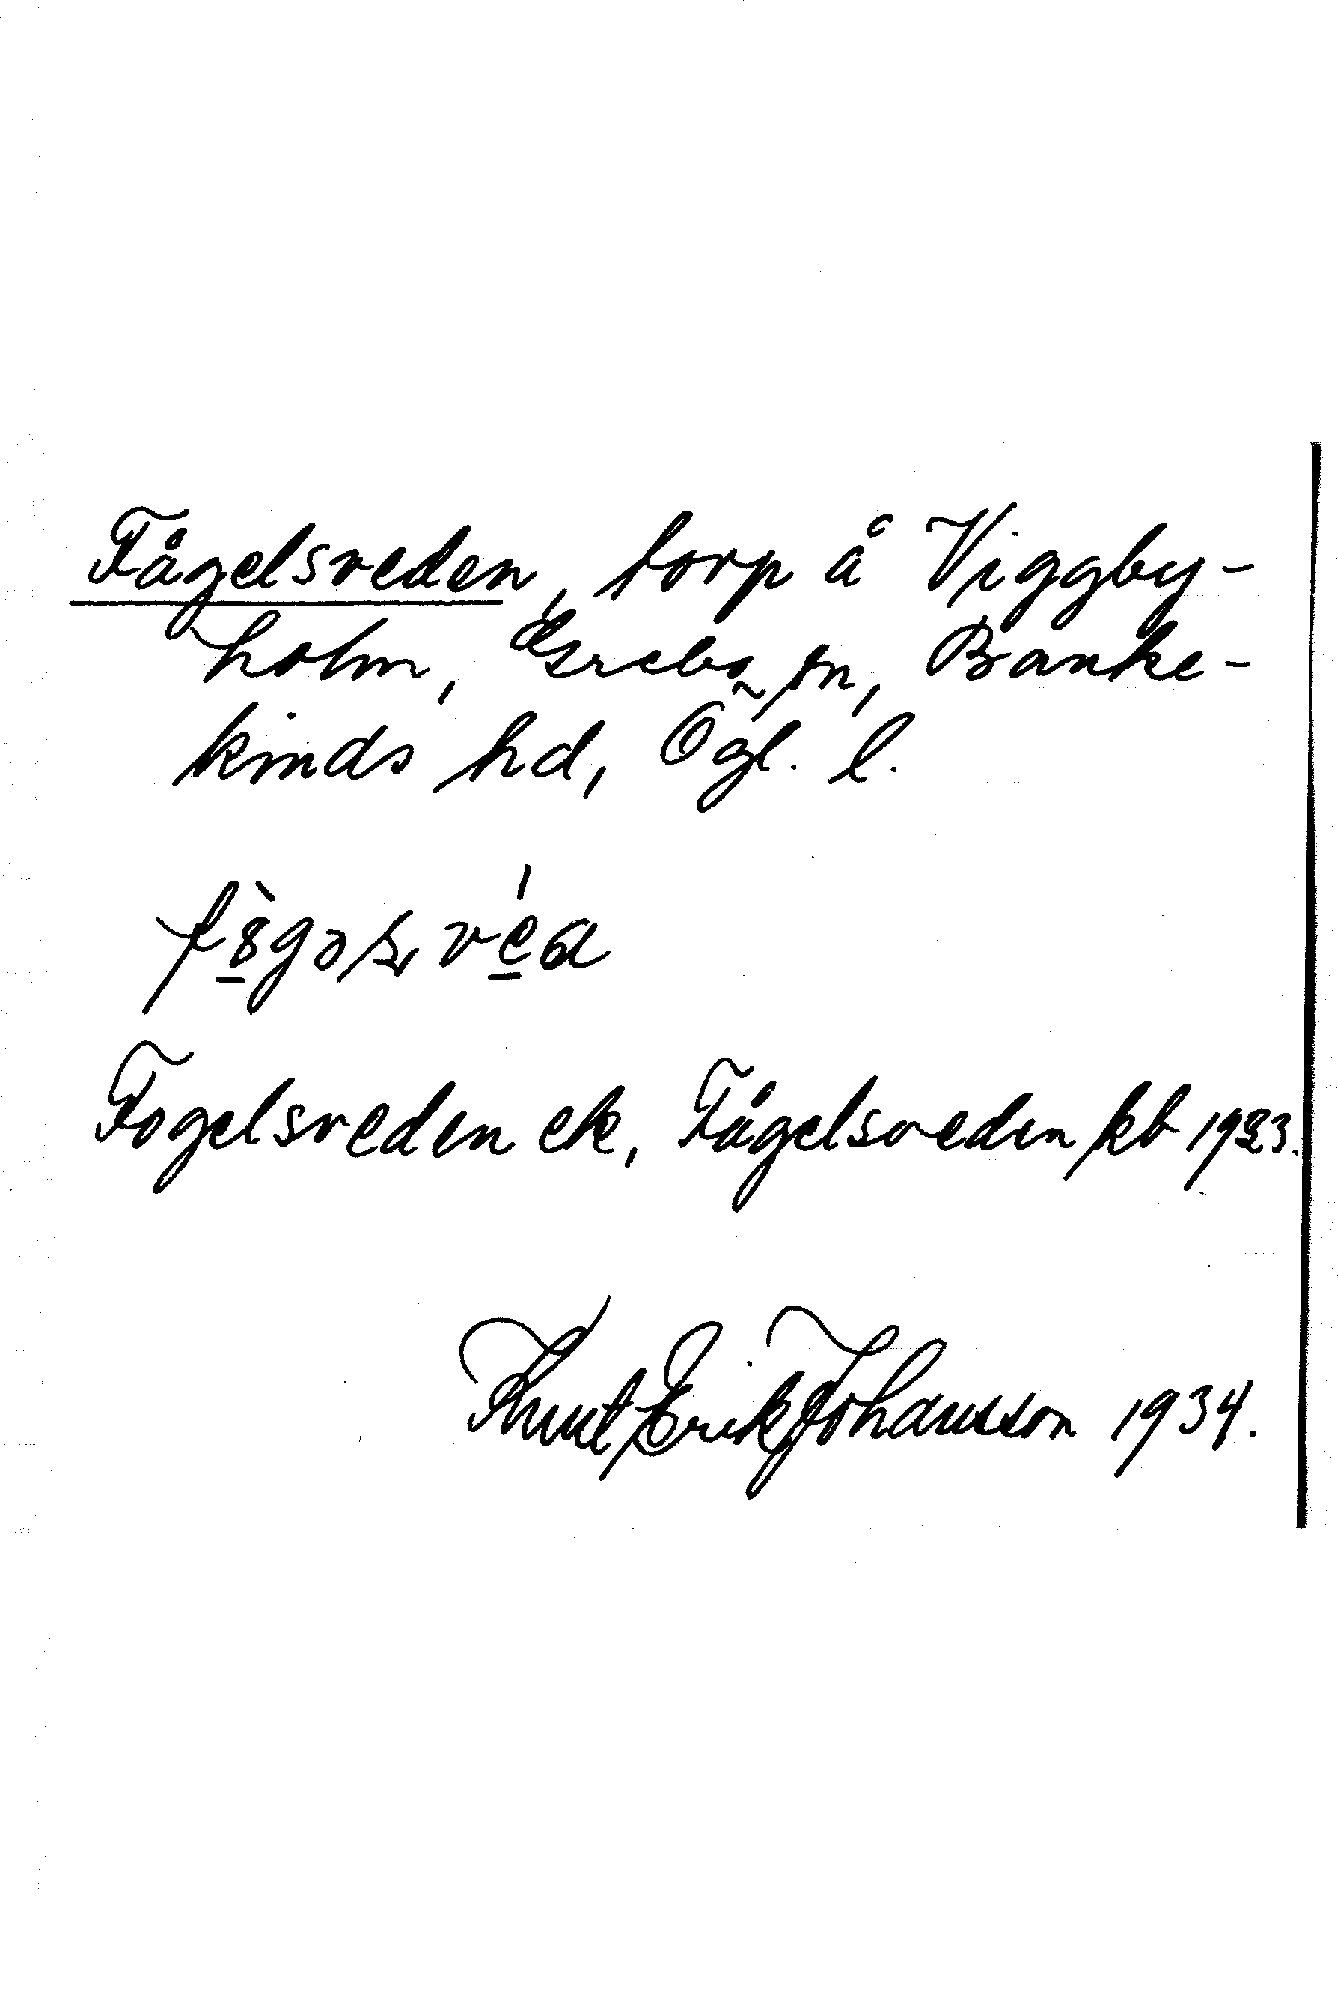 Fågelsveden, torp å Viggby-
holm, Grebo sn, Banke-
kinds hd, Ögl. l.
Fogelsveden ek, Fågelsveden kb 1933.
Knut Erik Johansson 1934.